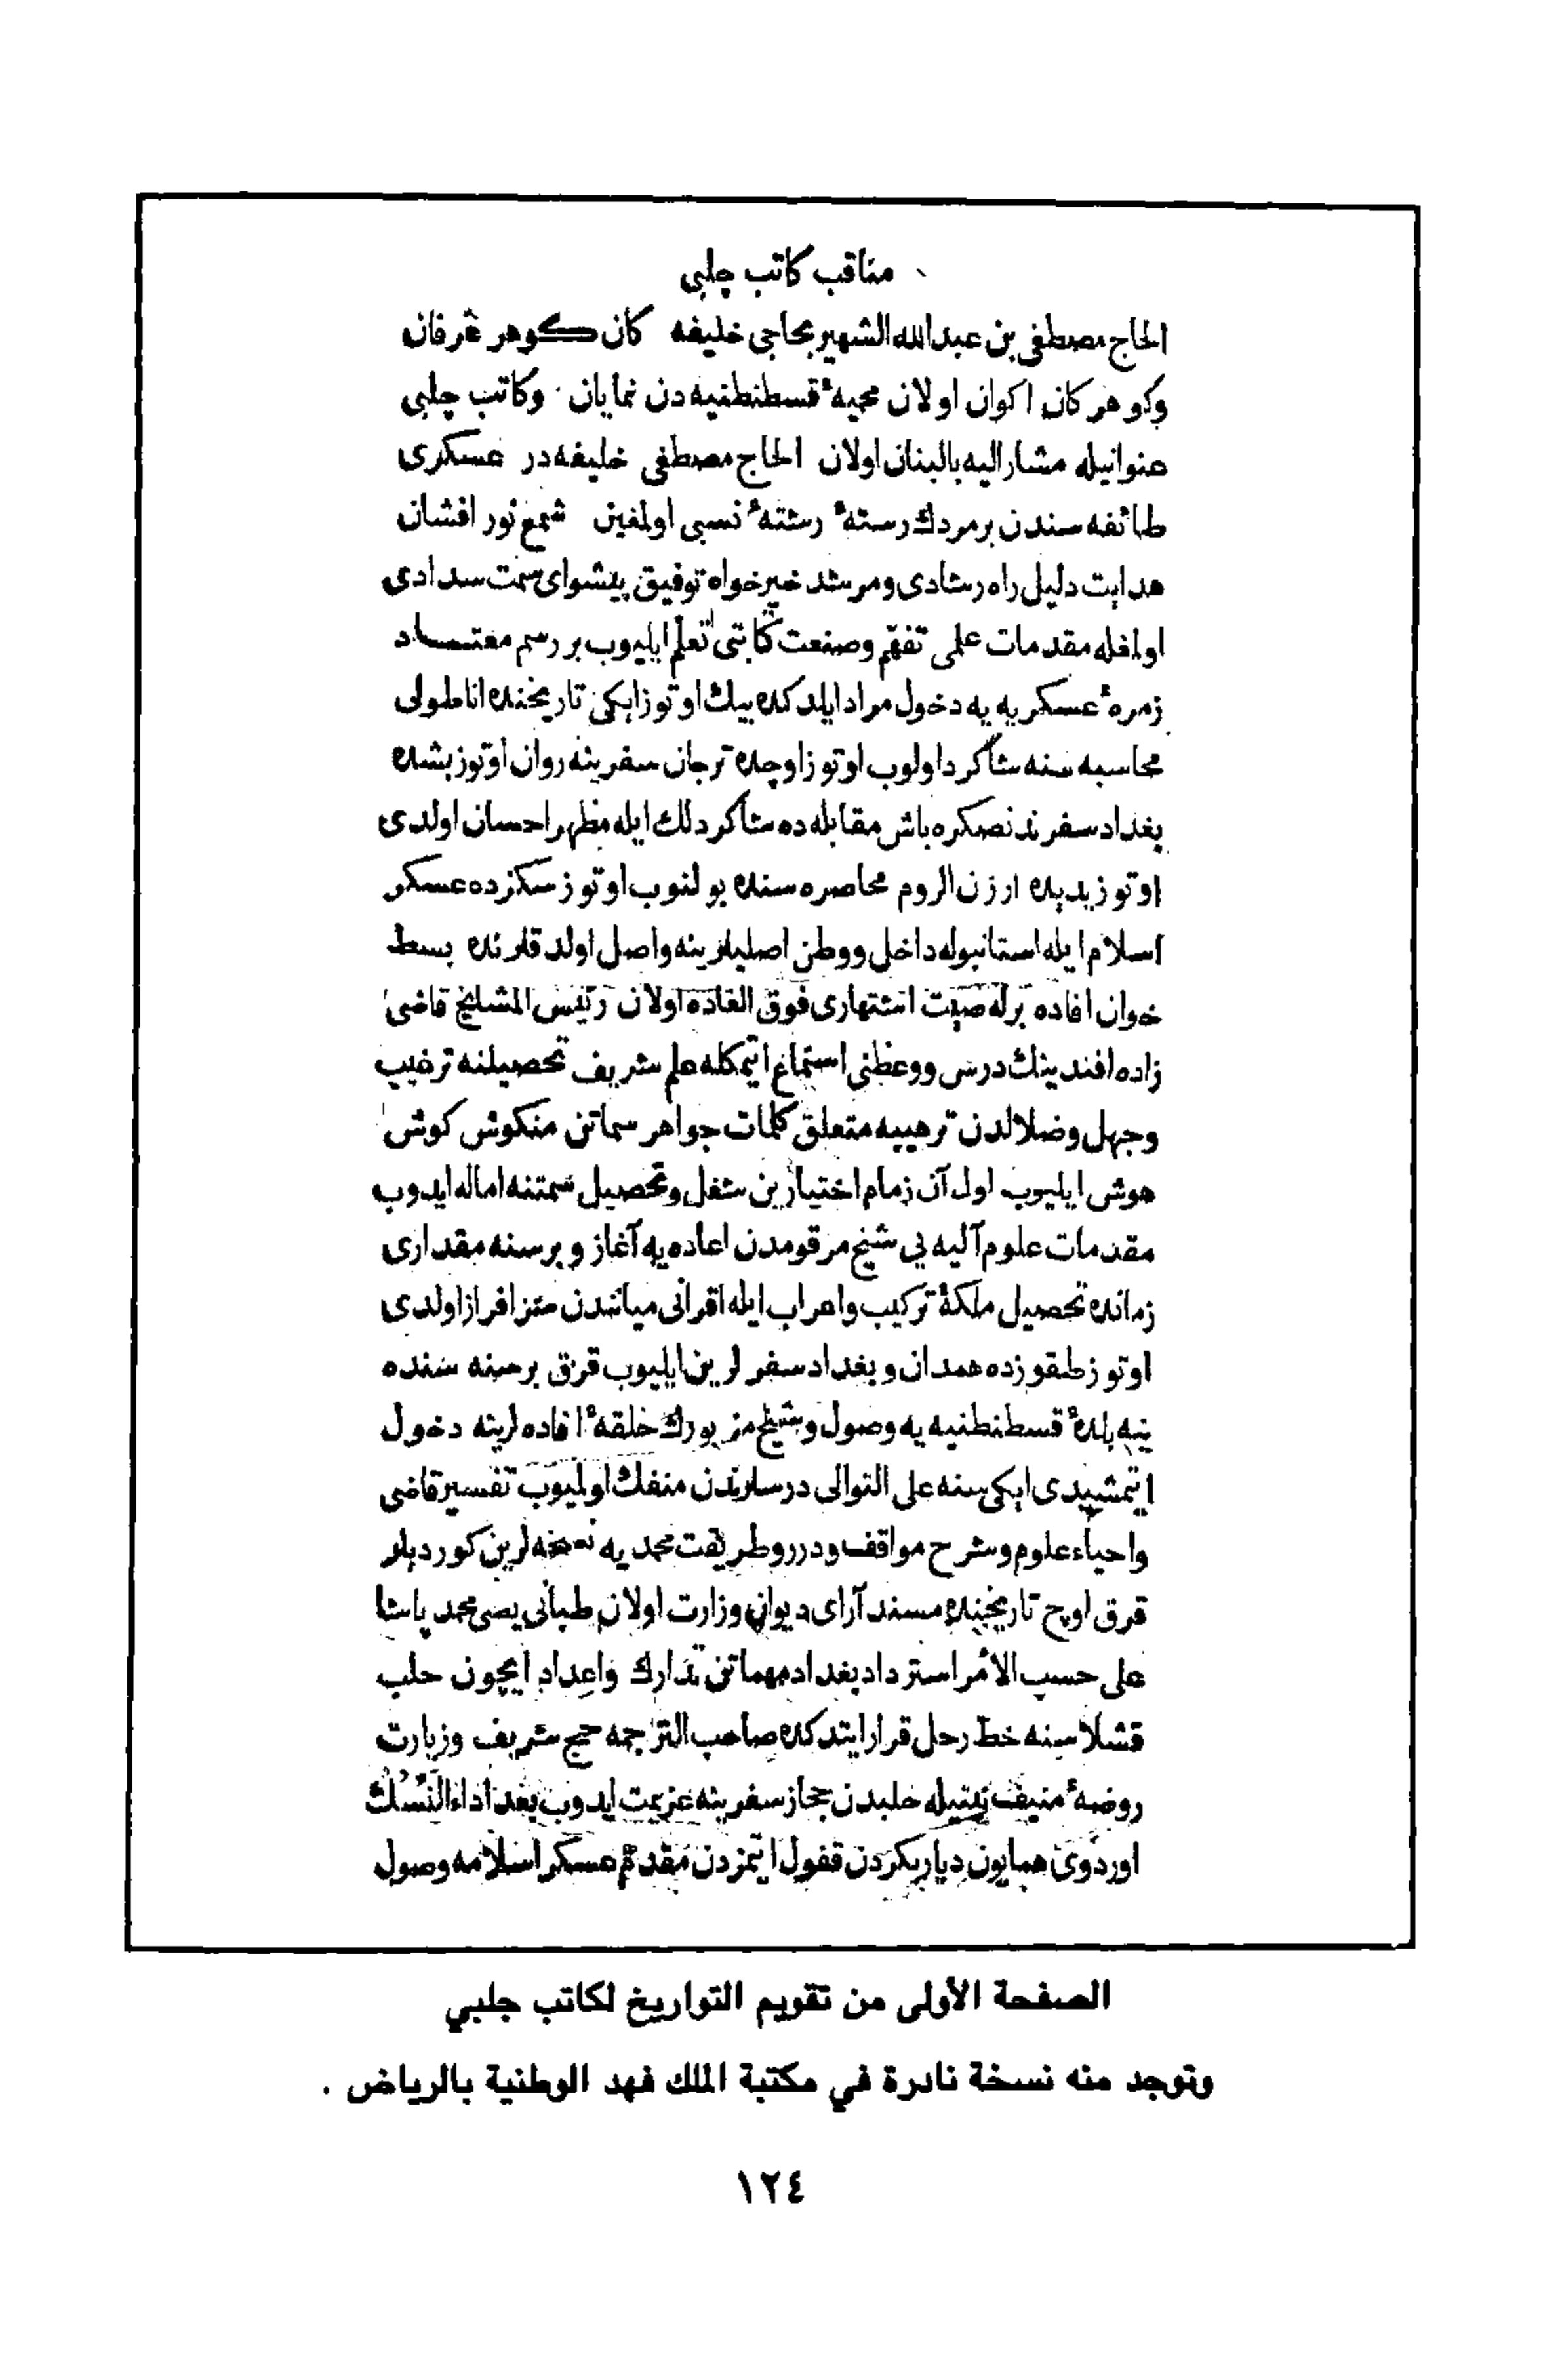 مناقب كاتب چلبى
الحاج مصطفى بن عبدالله الشهير بحاجى خليفه كان كوهر عرفان
وكوهر كان اكوان اولان محميهٔ قسطنطنيه دن نمايان وكاتب چلبى
عنوانيله مشاراليه بالبنان اولان الحاج مصطفى خليفه در عسكرى
طائفه سندن بر مردك رستهٔ رشتهٔ نسبى اولمغين شمع نور افشان
هدايت دليل راه رشادى ومرشد خير خواه توفيق پيشواى سمت سدادى
اولمغله مقدمات علمى تفهّم وصنعت كتابتى تعلّم ايليوب بر رسم معتاد
زمرهٔ عسكريه يه دخول مراد ايلدكده بيك اوتوز ايكى تاريخنده اناطولى
محاسبه سنه شاكرد اولوب اوتوز اوچده ترجان سفرينه روان اوتوز بشده
بغداد سفرندنصكره باش مقابله ده شاكردلك ايله مظهر احسان اولدى
اوتوز يديده ارزن الروم محاصره سنده بولنوب اوتوز سكزده عسكر
اسلام ايله استانبوله داخل ووطن اصليلرينه واصل اولدقلرنده بسط
خوان افاده برله صيت اشتهارى فوق العاده اولان رئيس المشايخ قاضى
زاده افندينك درس ووعظنى استماع اتمكله علم شريف تحصيلنه ترغيب
وجهل وضلالدن ترهيبه متعلق كلمات جواهر سماتن منكوش كوش
هوش ايليوب اول آن زمام اختيارين شغل وتحصيل سمتنه اماله ايدوب
مقدمات علوم آليه يى شيخ مرقومدن اعاده يه آغاز وبر سنه مقدارى
زمانده تحصيل ملكهٔ تركيب واعراب ايله اقرانى ميانندن سرافراز اولدى
اوتوز طقوزده همدان وبغداد سفرلرين ايليوب قرق بر سنه سنده
ينه بلدهٔ قسطنطنيه يه وصول وشيخ مزبورك حلقهٔ افاده لرينه دخول
اتمشيدى ايكى سنه على التوالى درسلرندن منفك اولميوب تفسير قاضى
واحياء علوم وشرح مواقف ودرر وطريقت محمديه نسخه لرين كورديلر
قرق اوچ تاريخنده مسند آراى ديوان وزارت اولان طبانى يصى محمد پاشا
على حسب الأمر استرداد بغداد مهماتن تدارك واعداد ايچون حلب
قشلاسنه حط رحل قرار ايتدكده صاحب الترجمه حج شريف وزيارت
روضهٔ منيفه نيتيله حلبدن حجاز سفرينه عزيمت ايدوب بعد اداء النُسُك
اوردوى همايون دياربكردن قفول اتمزدن مقدم عسكر اسلامه وصول
الصفحة الأولى من تقويم التواريخ لكاتب جلبي
وتوجد منه نسخة نادرة في مكتبة الملك فهد الوطنية بالرياض .
١٢٤